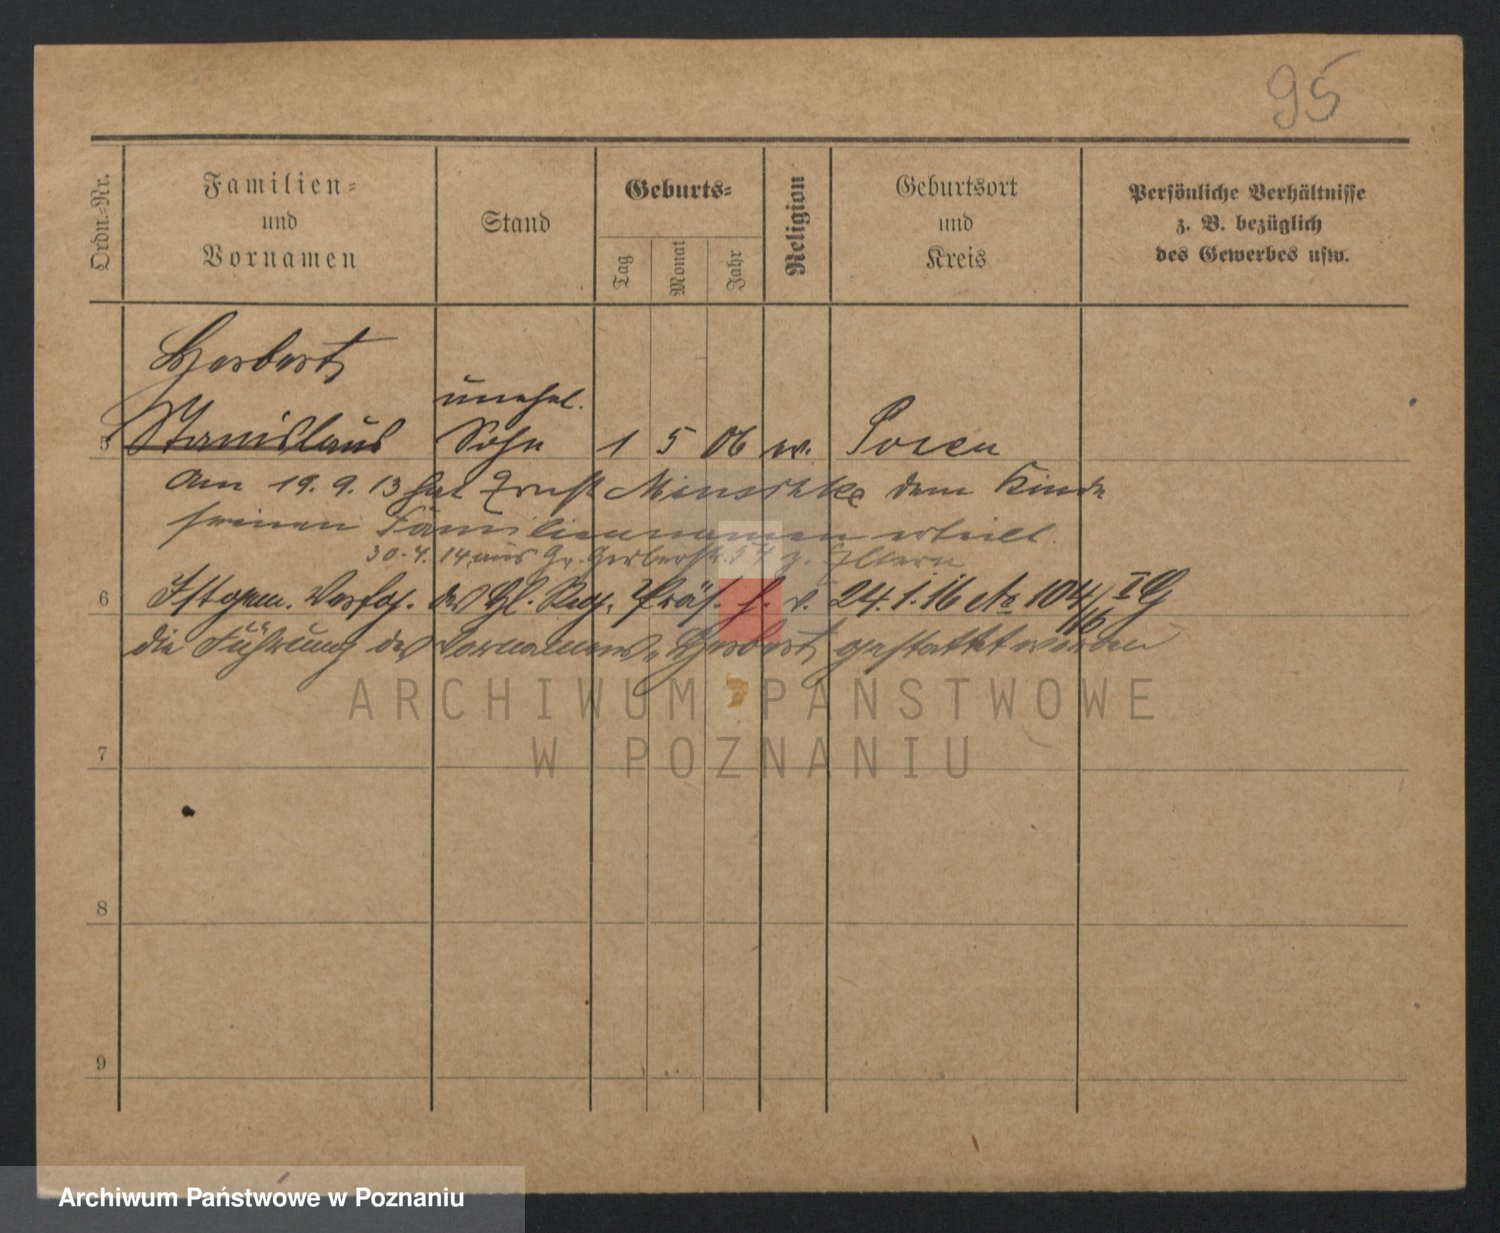 95
Ordn.-Nr.
Familien-
und
Vornamen
Stand
Geburts-
Tag
Monat
Jahr
Religion
Geburtsort
und
Kreis
Persönliche Verhältnisse
z. B. bezüglich
des Gewerbes usw.
Herbert
unehel.
5 Stanislaus Sohn 1 5 06 Posen
Am 19. 9. 13 hat Ernst dem Kinde
seinen Familiennamen erteilt.
30. 4. 14 aus Gr. Gerberstr. z. Eltern
6 Ist gem. Verfg. des Kgl. Reg. Präs. h. v. 24. 1. 16 No 104/16 I G
die Führung des Vornamens „Herbert" gestattet worden
ARCHIWUM PAŃSTWOWE
W POZNANIU
7
8
9
Archiwum Państwowe w Poznaniu